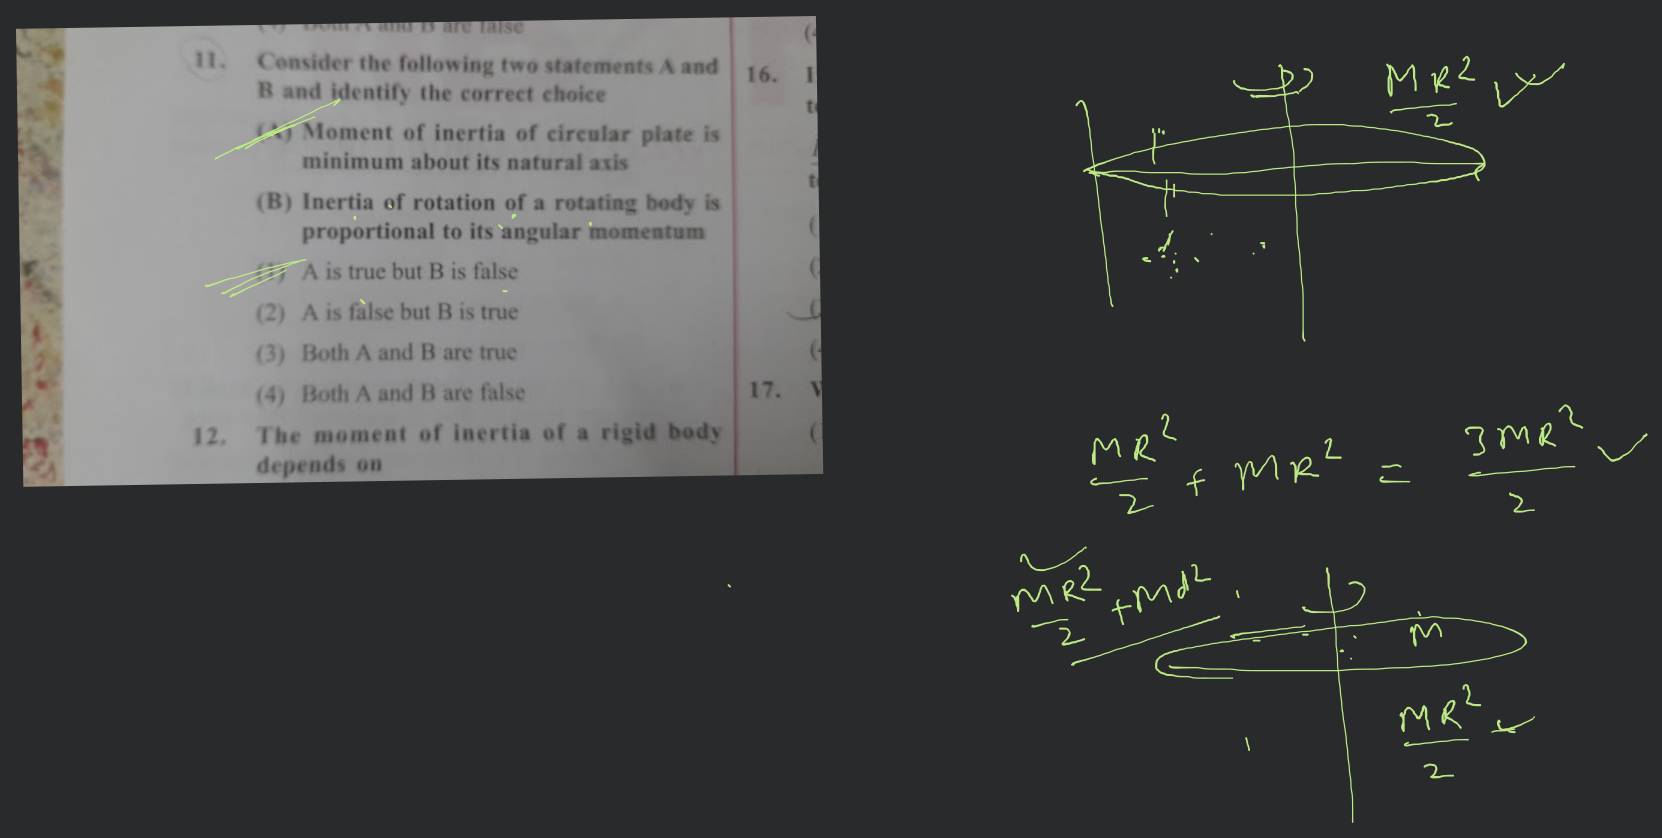 11. Consider the following two statements A and
B and identify the correct choice
(A) Moment of inertia of circular plate is
minimum about its natural axis
(B) Inertia of rotation of a rotating body is
proportional to its angular momentum
(1) A is true but B is false
(2) A is false but B is true
(3) Both A and B are true
(4) Both A and B are false
12. The moment of inertia of a rigid body
depends on
16.
17.
MR²/2
MR²/2 + MR² = 3MR²/2
MR²/2 + Md²
M
MR²/2